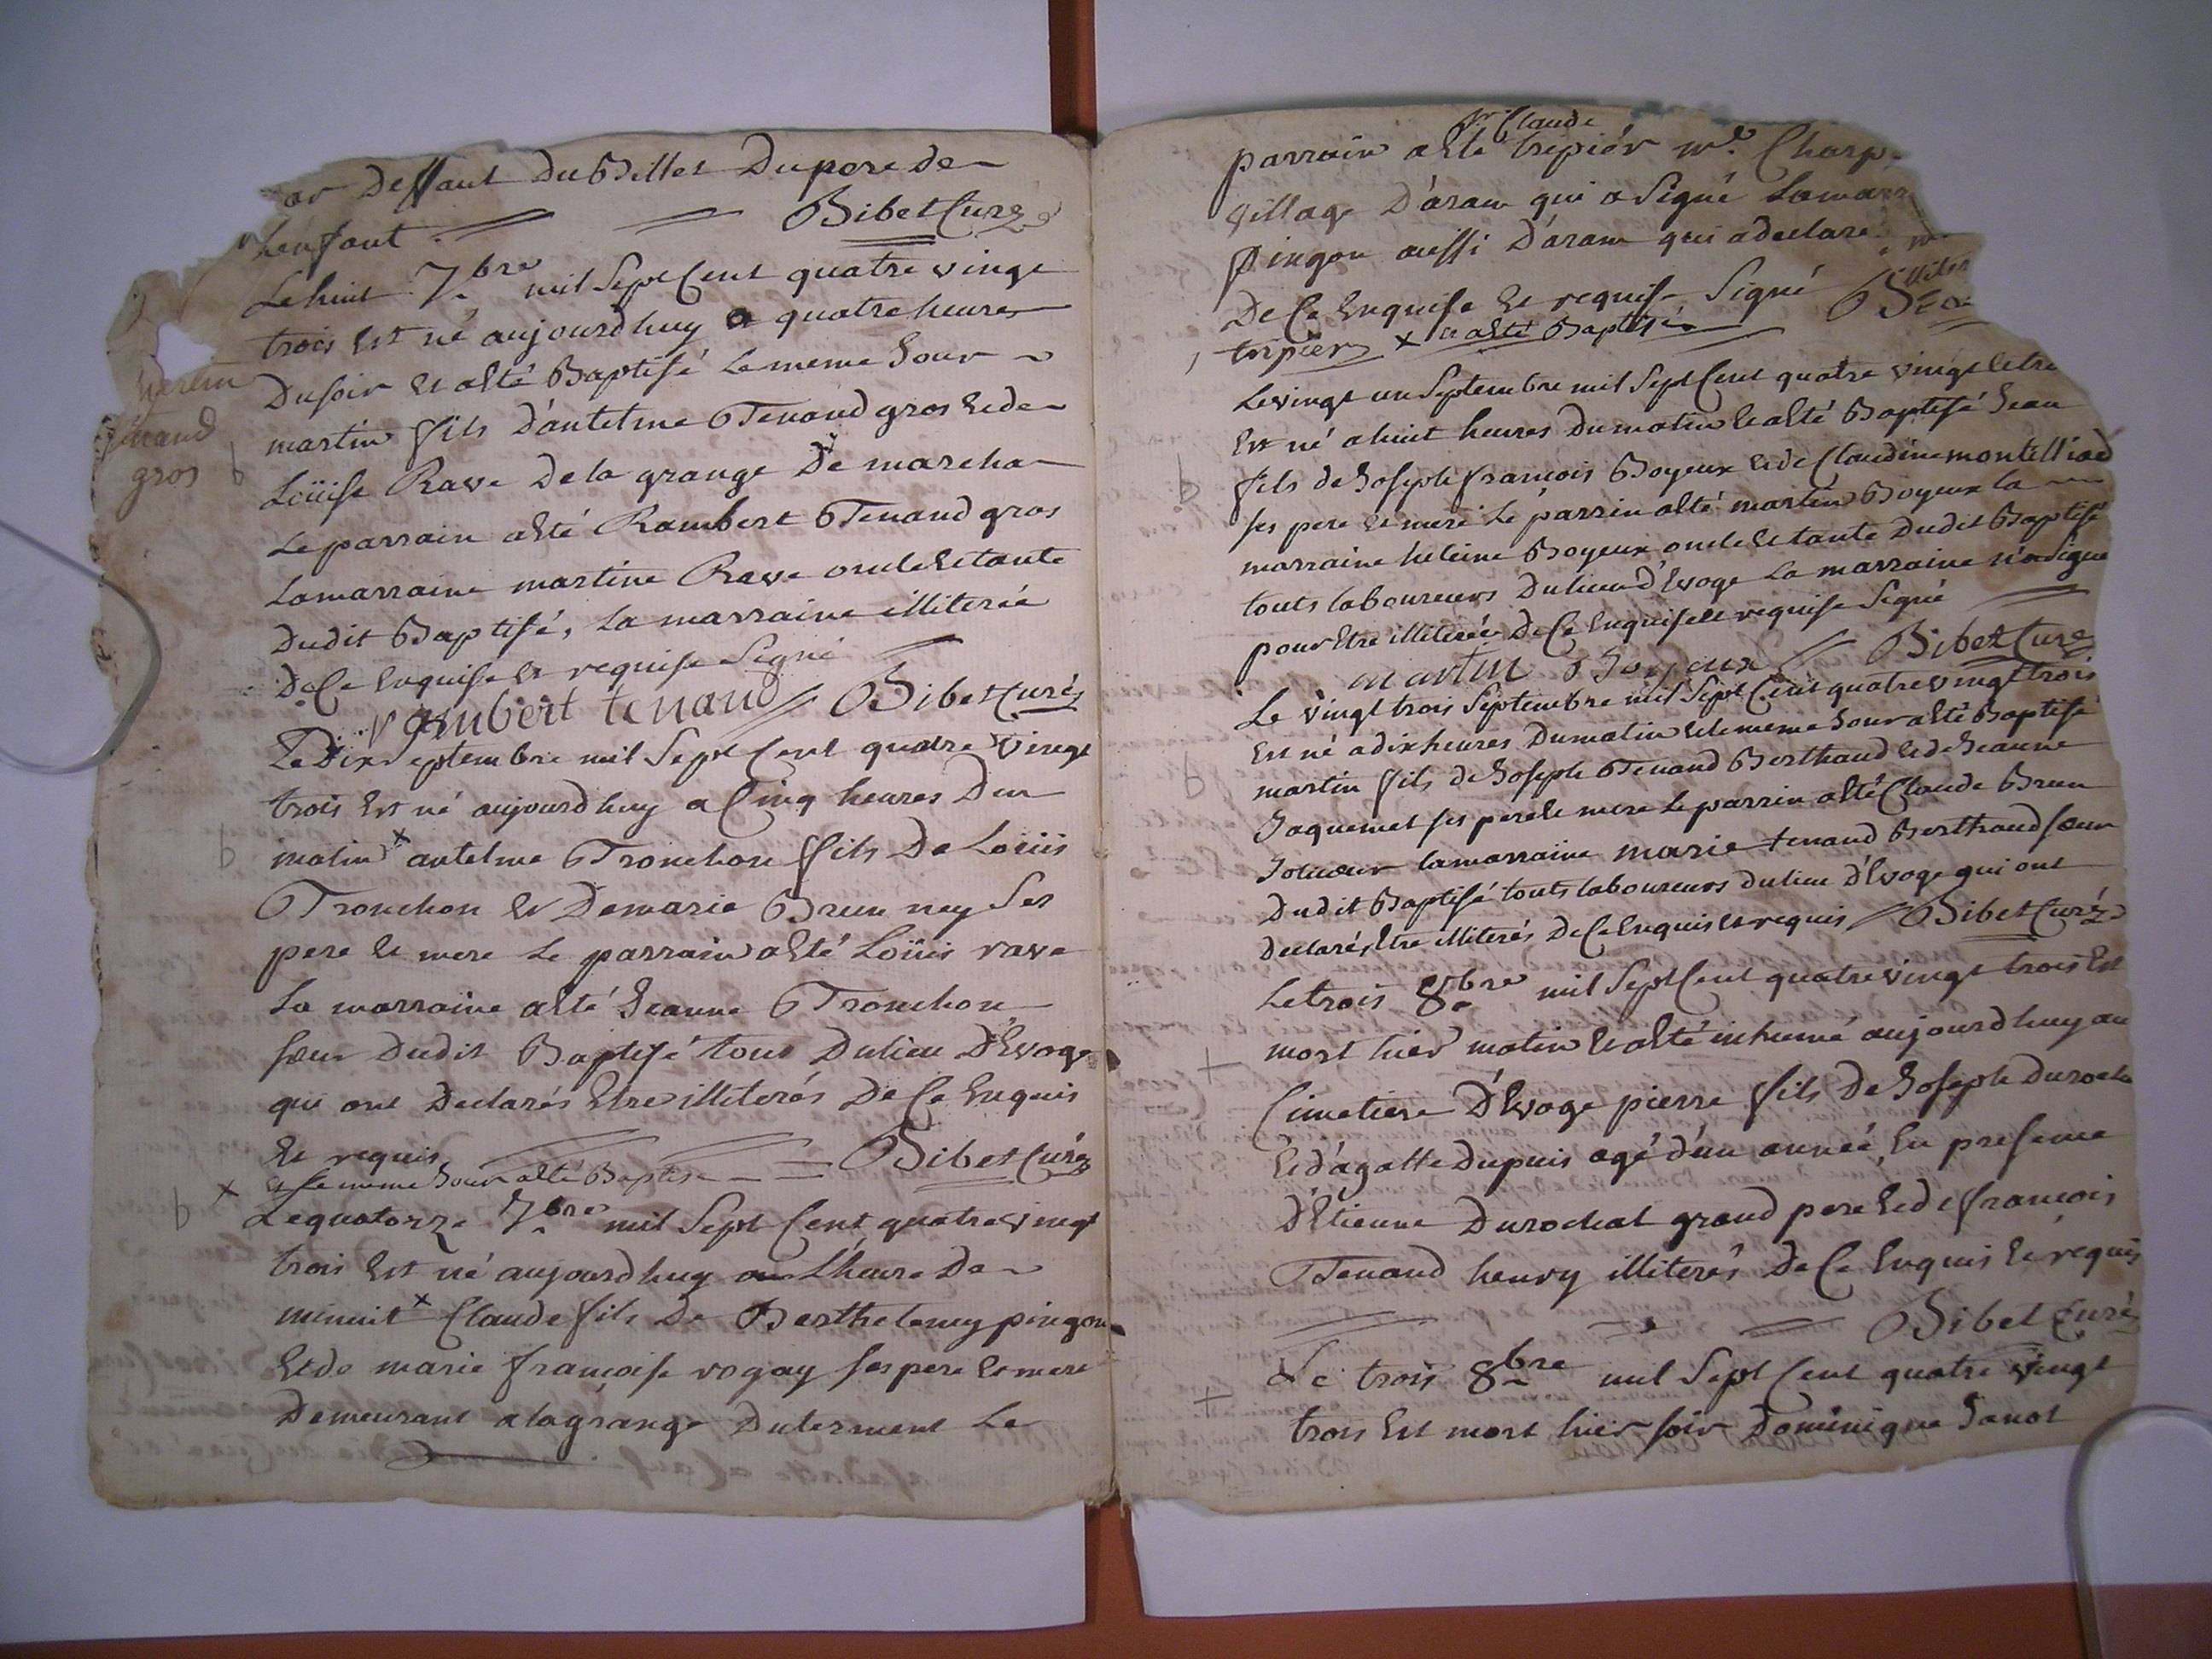 ar deffaut du Billet du pere de
Lenfant. Bibet Curé
Le huit 7bre mil Sept Cent quatre vingt
trois Est né aujourdhuy a quatre heures
Du soir Et a Eté Baptisé Le meme Jour
martin fils D'antelme Tenand gros Et de
Loüise Rave De la grange De marcha
Le parrain a Eté Rambert Tenand gros
La marraine martine Rave oncle Et tante
Dudit Baptisé, La marraine illiterée
De Ce Enquise Et requise Signé
rambert tenand Bibet Curé
Tenand
gros
b
Le Dix Septembre mil Sept Cent quatre vingt
trois Est né aujourdhuy a Cinq heures Du
b matin x antelme Tronchon fils De Loüis
Tronchon Et De marie Brun ney Ses
pere Et mere Le parrain a Eté Loüis rave
La marraine a Eté Jeanne Tronchon
sœur Dudit Baptisé tous Du lieu D'Evoge
qui ont Declarés Etre illiterés De Ce Enquis
Et requis Bibet Curé
x Et Le meme Jour a Eté Baptisé
b Le quatorze 7bre mil Sept Cent quatre vingt
trois Est né aujourdhuy a L'heure De
minuit x Claude fils De Berthelemy pingon
Et de marie françoise rogay ses pere Et mere
Demeurant a la grange Du terment Le
Sr Claude
parrain a Eté trepier md. Charp
village D'aram qui a Signé La marr
pingon aussi D'aram qui a declaré
De Ce Enquise Et requise Signé
trepier x Et a Eté Baptisé
Le vingt un Septembre mil Sept Cent quatre vingt Et tro
Est né a huit heures Du matin Et a Eté Baptisé Jean
b fils de Joseph françois Boyeux Et de Claudine montilliad
ses pere Et mere Le parrin a Eté martin Boyeux la
marraine heleine Boyeux oncle Et tante Dudit Baptisé
touts laboureurs Du lieu D'Evoge La marraine n'a Signé
pour Etre illiterée De Ce Enquise Et requise Signé
martin Boyeux Bibet Curé
Le vingt trois Septembre mil Sept Cent quatre vingt trois
Est né a dix heures Du matin Et le meme Jour a Eté Baptisé
b martin fils de Joseph Tenand Berthand Et de Jeanne
Jaquemet ses pere Et mere Le parrin a Eté Claude Brun
la marraine marie tenand Berthand sœur
Dudit Baptisé touts laboureurs Du lieu D'Evoge qui ont
Declarés Etre illiterés De Ce Enquis Et requis Bibet Curé
Le trois 8bre mil Sept Cent quatre vingt trois Est
+ mort hier matin Et a Eté inhumé aujourdhuy au
Cimetiere D'Evoge pierre fils De Joseph Durochat
Et d'agatte Dupuis agé d'un année, En presence
D'Etienne Durochat grand pere Et de françois
Tenand henry illiterés De Ce Enquis Et requis
Bibet Curé
+ Le trois 8bre mil Sept Cent quatre vingt
trois Est mort hier soir Dominique Janot